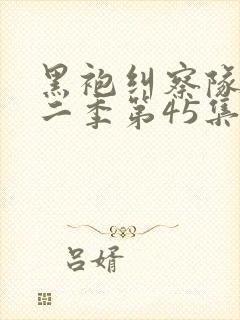 黑袍纠察队
二季第45集
吕婿